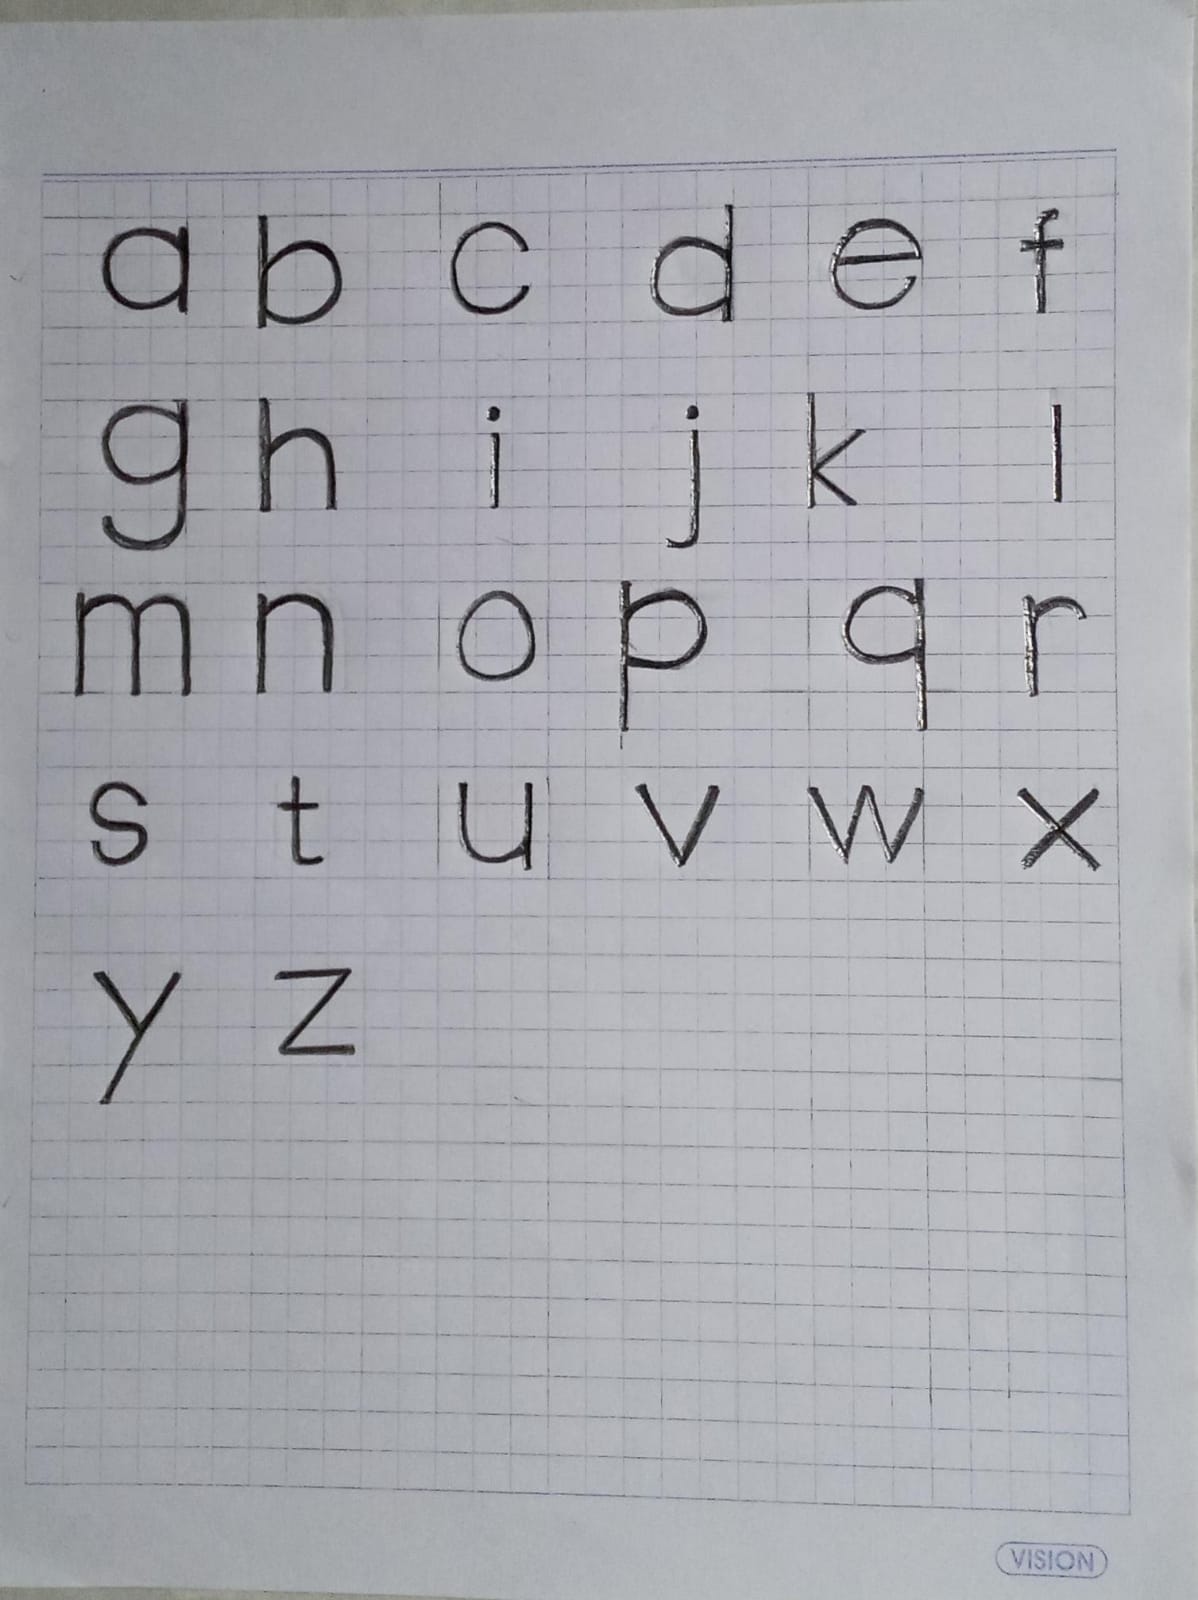 a b c d e f
g h i j k l
m n o p q r
s t u v w x
y z
VISION